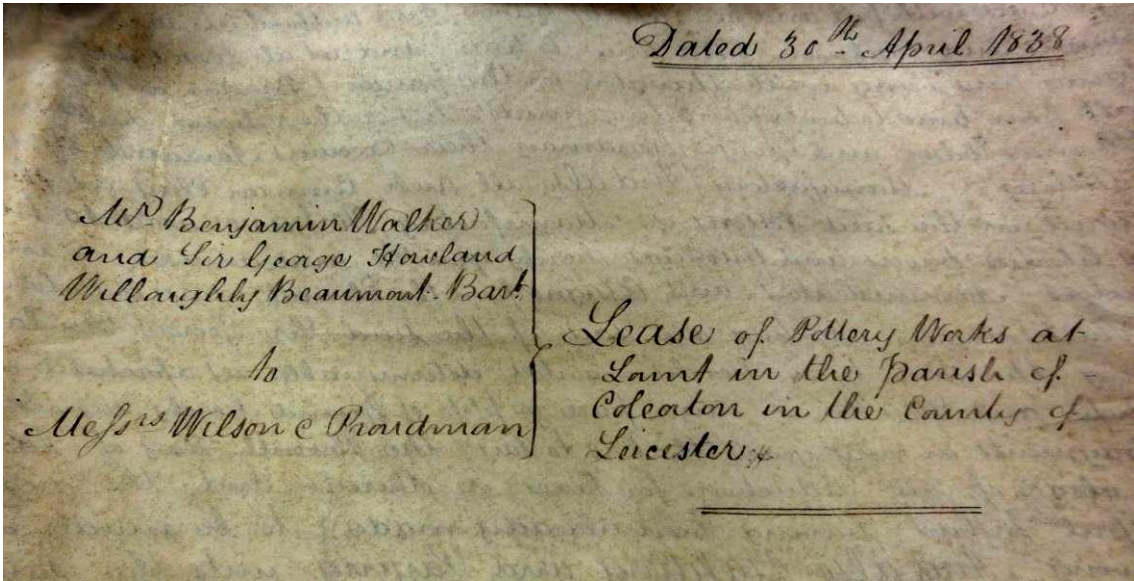 Dated 30th April 1838
Mr. Benjamin Walker
and Sir George Howland
Willoughby Beaumont. Bart.
to
Messrs Wilson &
Lease of Pottery Works at
in the Parish of -
Coleorton in the County of
Leicester